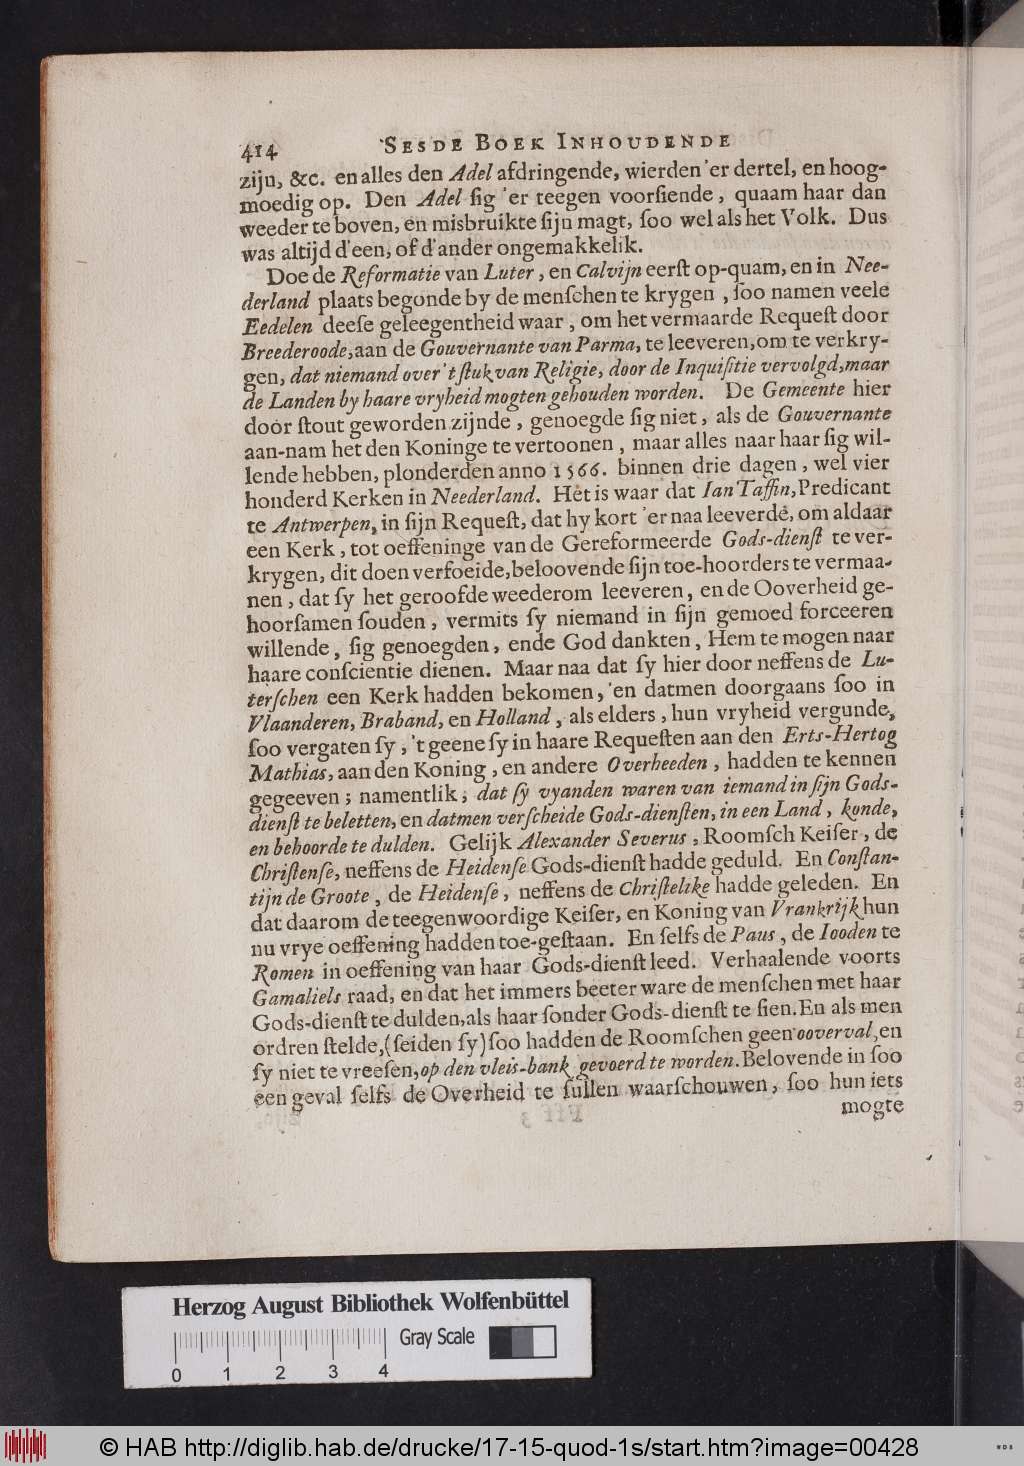 414 SESDE BOEK INHOUDENDE
zijn, &c. en alles den Adel afdringende, wierden 'er dertel, en hoog-
moedig op. Den Adel ſig 'er teegen voorſiende, quaam haar dan
weeder te boven, en misbruikte ſijn magt, ſoo wel als het Volk. Dus
was altijd d'een, of d'ander ongemakkelik.
Doe de Reformatie van Luter, en Calvijn eerſt op-quam, en in Nee-
derland plaats begonde by de menſchen te krygen, ſoo namen veele
Eedelen deeſe geleegentheid waar, om het vermaarde Requeſt door
Breederoode, aan de Gouvernante van Parma, te leeveren, om te verkry-
gen, dat niemand over 't ſtuk van Religie, door de Inquiſitie vervolgd, maar
de Landen by haare vryheid mogten gehouden worden. De Gemeente hier
door ſtout geworden zijnde, genoegde ſig niet, als de Gouvernante
aan-nam het den Koninge te vertoonen, maar alles naar haar ſig wil-
lende hebben, plonderden anno 1566. binnen drie dagen, wel vier
honderd Kerken in Neederland. Het is waar dat Ian Taffin, Predicant
te Antwerpen, in ſijn Requeſt, dat hy kort 'er naa leeverde, om aldaar
een Kerk, tot oeffeninge van de Gereformeerde Gods-dienſt te ver-
krygen, dit doen verfoeide, beloovende ſijn toe-hoorders te vermaa-
nen, dat ſy het geroofde weederom leeveren, en de Ooverheid ge-
hoorſamen ſouden, vermits ſy niemand in ſijn gemoed forceeren
willende, ſig genoegden, ende God dankten, Hem te mogen naar
haare conſcientie dienen. Maar naa dat ſy hier door neffens de Lu-
terſchen een Kerk hadden bekomen, en datmen doorgaans ſoo in
Vlaanderen, Braband, en Holland, als elders, hun vryheid vergunde,
ſoo vergaten ſy, 't geene ſy in haare Requeſten aan den Erts-Hertog
Mathias, aan den Koning, en andere Overheeden, hadden te kennen
gegeeven; namentlik, dat ſy vyanden waren van iemand in ſijn Gods-
dienſt te beletten, en datmen verſcheide Gods-dienſten, in een Land, konde,
en behoorde te dulden. Gelijk Alexander Severus, Roomſch Keiſer, de
Chriſtenſe, neffens de Heidenſe Gods-dienſt hadde geduld. En Conſtan-
tijn de Groote, de Heidenſe, neffens de Chriſtelike hadde geleden. En
dat daarom de teegenwoordige Keiſer, en Koning van Vrankrijk hun
nu vrye oeffening hadden toe-geſtaan. En ſelfs de Paus, de Iooden te
Romen in oeffening van haar Gods-dienſt leed. Verhaalende voorts
Gamaliels raad, en dat het immers beeter ware de menſchen met haar
Gods-dienſt te dulden, als haar ſonder Gods-dienſt te ſien. En als men
ordren ſtelde, (ſeiden ſy) ſoo hadden de Roomſchen geen ooverval, en
ſy niet te vreeſen, op den vleis-bank gevoerd te worden. Belovende in ſoo
een geval ſelfs de Overheid te ſullen waarſchouwen, ſoo hun iets
mogte
Herzog August Bibliothek Wolfenbüttel
Gray Scale
0 1 2 3 4
© HAB http://diglib.hab.de/drucke/17-15-quod-1s/start.htm?image=00428